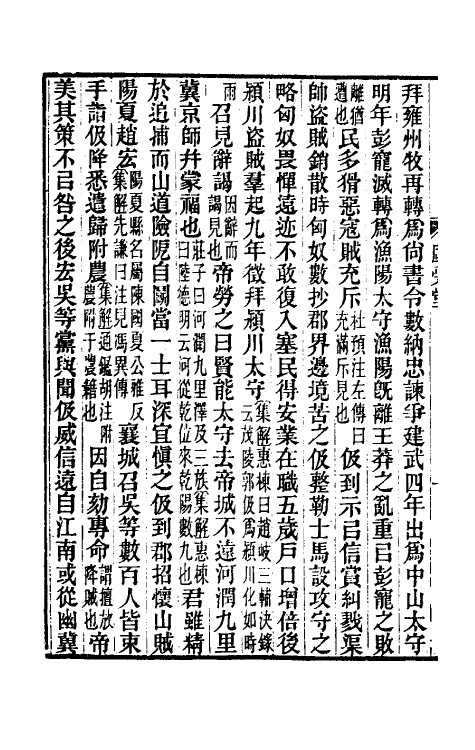 拜雍州牧再轉爲尙書令數納忠諫爭建武四年出爲中山太守
明年彭寵滅轉爲漁陽太守漁陽旣離王莽之亂重㠯彭寵之敗
離猶遭也民多猾惡寇賊充斥杜預注左傳曰充滿斥見也伋到示㠯信賞糾戮渠
師盜賊銷散時匈奴數抄郡界邊境苦之伋整勒士馬設攻守之
略匈奴畏憚遠迹不敢復入塞民得安業在職五歲戶口增倍後
潁川盜賊羣起九年徵拜潁川太守集解惠棟曰趙岐三輔決錄云茂陵郭伋爲潁川化如時
雨召見辭謁因辭而謁見也帝勞之曰賢能太守去帝城不遠河潤九里
冀京師幷蒙福也莊子曰河潤九里澤及三族集解惠棟曰陸德明云河從乾位來乾陽數九也君雖精
於追捕而山道險阸自鬬當一士耳深宜愼之伋到郡招懷山賊
陽夏趙宏陽夏縣名屬陳國夏公雅反集解先謙曰注見馮異傳襄城召吳等數百人皆束
手詣伋降悉遣歸附農集解通鑑胡注附農附于農籍也因自劾專命謂擅放降賊也帝
美其策不㠯咎之後宏吳等黨與聞伋威信遠自江南或從幽冀